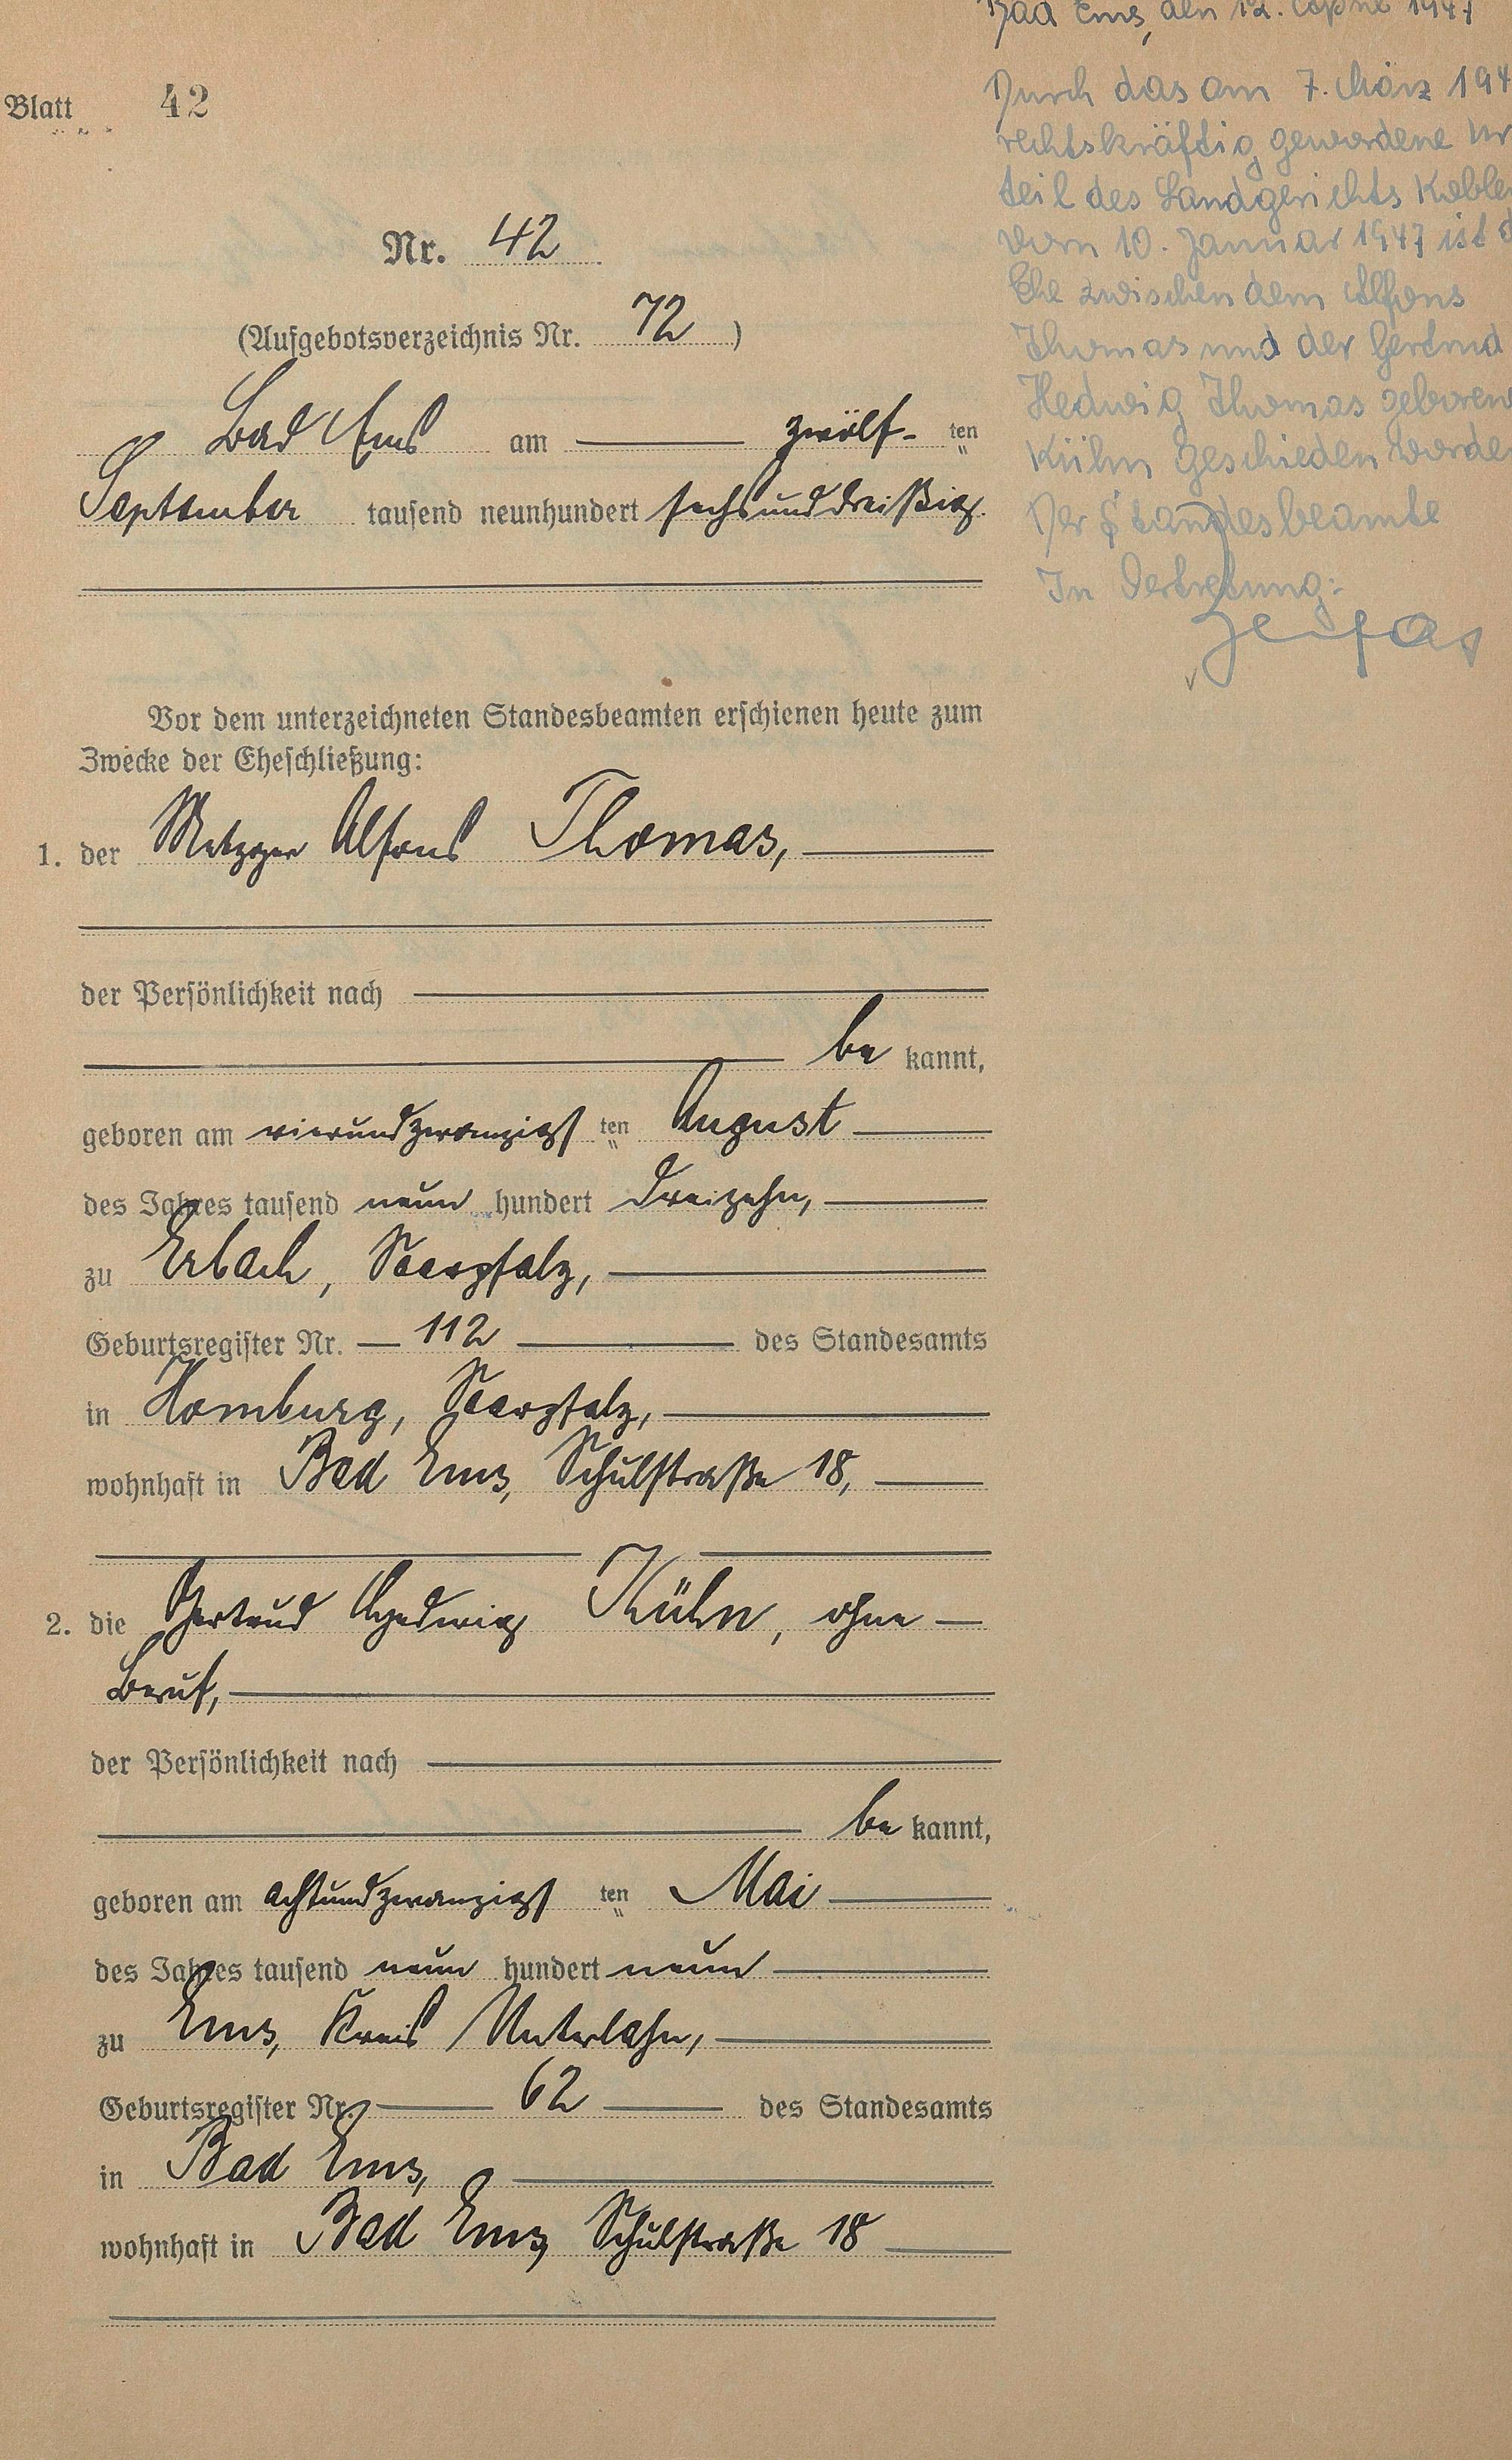 Blatt 42
Nr. 42
(Aufgebotsverzeichnis Nr. 72)
Bad Ems am zwölf- ten
September tausend neunhundert sechsunddreißig.
Vor dem unterzeichneten Standesbeamten erschienen heute zum
Zwecke der Eheschließung:
1. der Metzger Alfons Thomas,
der Persönlichkeit nach
be kannt,
geboren am vierundzwanzigs ten August
des Jahres tausend neun hundert dreizehn,
zu Erbach, Saarpfalz,
Geburtsregister Nr. 112 des Standesamts
in Homburg, Saarpfalz,
wohnhaft in Bad Ems, Schulstraße 18,
2. die Gertrud Hedwig Kühn, ohne
Beruf,
der Persönlichkeit nach
be kannt,
geboren am achtundzwanzigs ten Mai
des Jahres tausend neun hundert neun
zu Ems, Kreis Unterlahn,
Geburtsregister Nr. 62 des Standesamts
in Bad Ems,
wohnhaft in Bad Ems, Schulstraße 18
Bad Ems, den 12. April 1947
Durch das am 7. März 194
rechtskräftig gewordene Ur
teil des Landgerichts Koble
vom 10. Januar 1947 ist d
Ehe zwischen dem Alfons
Thomas und der Gertrud
Hedwig Thomas geborene
Kühn geschieden worde
Der Standesbeamte
In Vertretung: